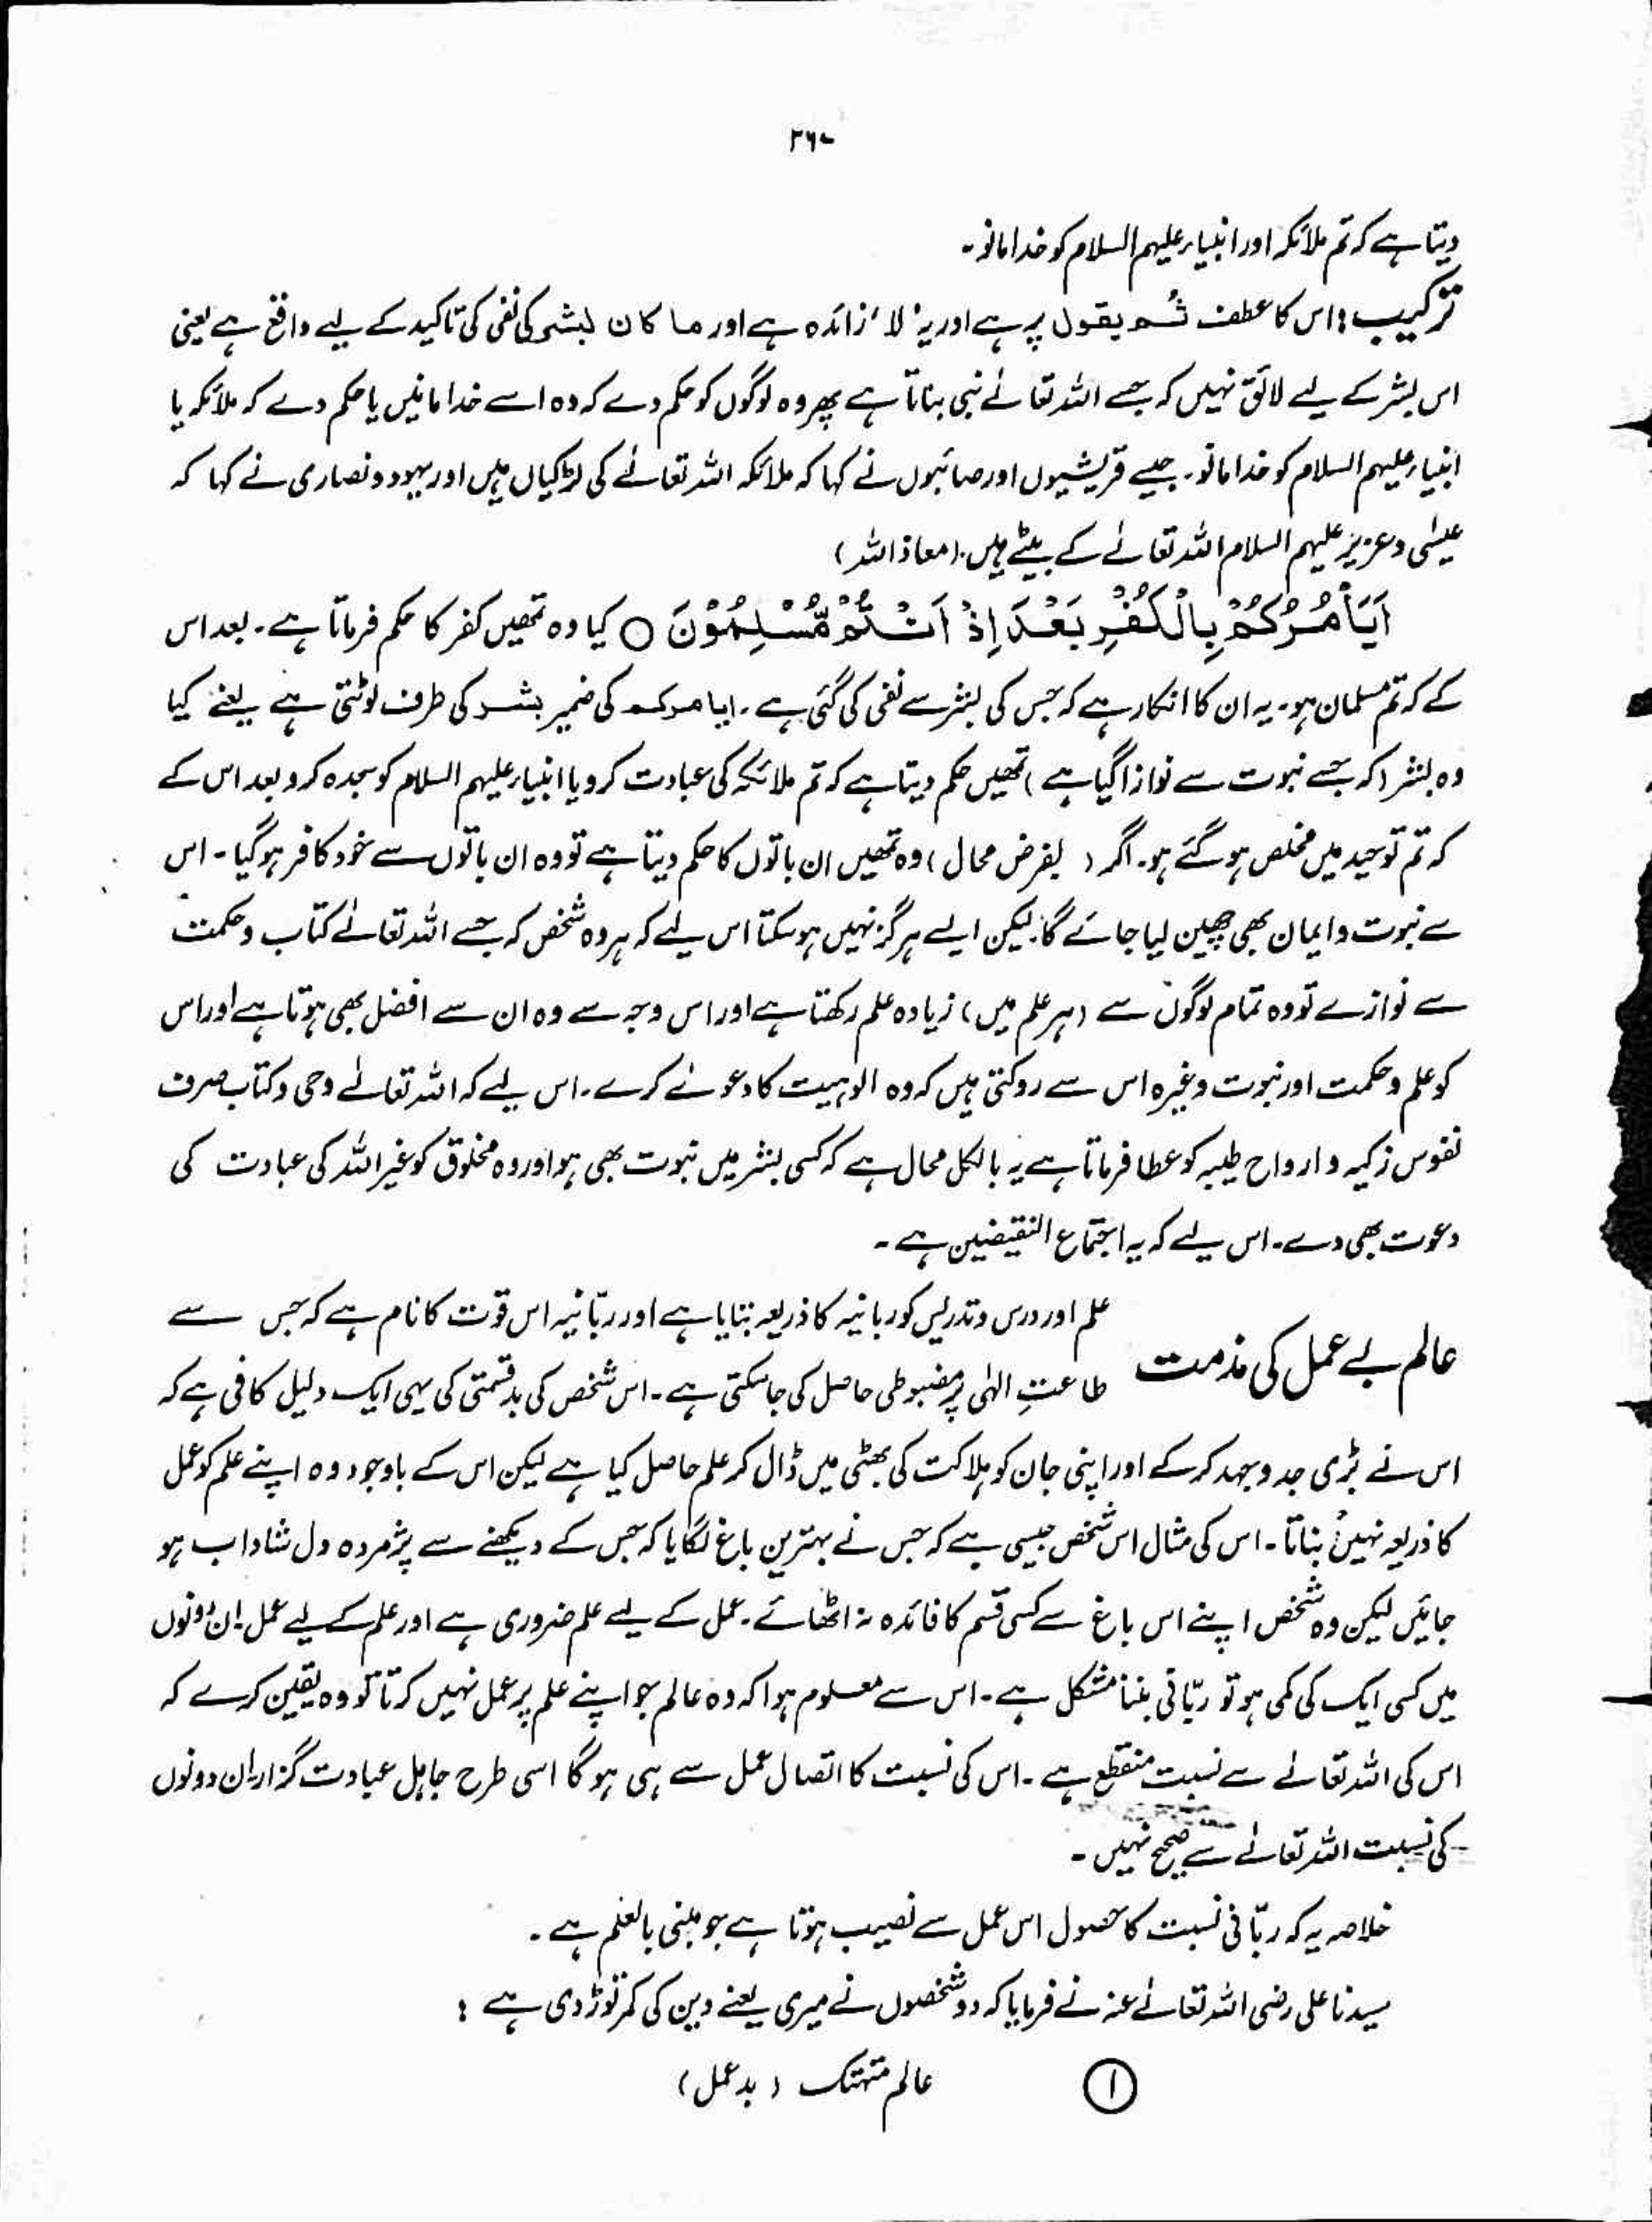 ۲۶۷
دیتا ہے کہ تم ملائکہ اور انبیاء علیہم السلام کو خدا مانو۔
ترکیب: اس کا عطف ثم یقول پر ہے اور یہ ’لا‘ زائدہ ہے اور ما کان لبشر کی نفی کی تاکید کے لیے واقع ہے یعنی
اس بشر کے لیے لائق نہیں کہ جسے اللہ تعالےٰ نبی بناتا ہے پھر وہ لوگوں کو حکم دے کہ وہ اسے خدا مانیں یا حکم دے کہ ملائکہ یا
انبیاء علیہم السلام کو خدا مانو۔ جیسے قریشیوں اور صائبوں نے کہا کہ ملائکہ اللہ تعالےٰ کی لڑکیاں ہیں اور یہود و نصاریٰ نے کہا کہ
عیسٰی و عزیر علیہم السلام اللہ تعالےٰ کے بیٹے ہیں (معاذ اللہ)
اَیَاْمُرُکُمْ بِالْکُفْرِ بَعْدَ اِذْ اَنْتُمْ مُّسْلِمُوْنَ ○ کیا وہ تمھیں کفر کا حکم فرماتا ہے۔ بعد اس
کے کہ تم مسلمان ہو۔ یہ ان کا انکار ہے کہ جس کی بشر سے نفی کی گئی ہے۔ ایامرکم کی ضمیر بشر کی طرف لوٹتی ہے یعنے کیا
وہ بشر (کہ جسے نبوت سے نوازا گیا ہے) تمھیں حکم دیتا ہے کہ تم ملائکہ کی عبادت کرو یا انبیاء علیہم السلام کو سجدہ کرو بعد اس کے
کہ تم توحید میں مخلص ہو گئے ہو۔ اگر (بفرض محال) وہ تمھیں ان باتوں کا حکم دیتا ہے تو وہ ان باتوں سے خود کافر ہو گیا۔ اس
سے نبوت و ایمان بھی چھین لیا جائے گا لیکن ایسے ہرگز نہیں ہو سکتا اس لیے کہ ہر وہ شخص کہ جسے اللہ تعالےٰ کتاب و حکمت
سے نوازے تو وہ تمام لوگوں سے (ہر علم میں) زیادہ علم رکھتا ہے اور اس وجہ سے وہ ان سے افضل بھی ہوتا ہے اور اس
کو علم و حکمت اور نبوت وغیرہ اس سے روکتی ہیں کہ وہ الوہیت کا دعوےٰ کرے۔ اس لیے کہ اللہ تعالےٰ وحی و کتاب صرف
نفوس زکیہ و ارواح طیبہ کو عطا فرماتا ہے یہ بالکل محال ہے کہ کسی بشر میں نبوت بھی ہو اور وہ مخلوق کو غیر اللہ کی عبادت کی
دعوت بھی دے۔ اس لیے کہ یہ اجتماع النقیضین ہے۔
عالم بے عمل کی مذمت
علم اور درس و تدریس کو ربانیہ کا ذریعہ بنایا ہے اور ربّانیہ اس قوت کا نام ہے کہ جس سے
طاعتِ الٰہی پر مضبوطی حاصل کی جا سکتی ہے۔ اس شخص کی بدقسمتی کی یہی ایک دلیل کافی ہے کہ
اس نے بڑی جد و جہد کر کے اور اپنی جان کو ہلاکت کی بھٹی میں ڈال کر علم حاصل کیا ہے لیکن اس کے باوجود وہ اپنے علم کو عمل
کا ذریعہ نہیں بناتا۔ اس کی مثال اس شخص جیسی ہے کہ جس نے بہترین باغ لگایا کہ جس کے دیکھنے سے پژمردہ دل شاداب ہو
جائیں لیکن وہ شخص اپنے اس باغ سے کسی قسم کا فائدہ نہ اٹھائے۔ عمل کے لیے علم ضروری ہے اور علم کے لیے عمل۔ ان دونوں
میں کسی ایک کی کمی ہو تو ربّانی بننا مشکل ہے۔ اس سے معلوم ہوا کہ وہ عالم جو اپنے علم پر عمل نہیں کرتا تو وہ یقین کرے کہ
اس کی اللہ تعالےٰ سے نسبت منقطع ہے۔ اس کی نسبت کا اتصال عمل سے ہی ہو گا اسی طرح جاہل عبادت گزار۔ ان دونوں
کی نسبت اللہ تعالےٰ سے صحیح نہیں۔
خلاصہ یہ کہ ربّانی نسبت کا حصول اس عمل سے نصیب ہوتا ہے جو مبنی بالعلم ہے۔
سیدنا علی رضی اللہ تعالےٰ عنہ نے فرمایا کہ دو شخصوں نے میری یعنے دین کی کمر توڑ دی ہے:
① عالم متہتک (بد عمل)